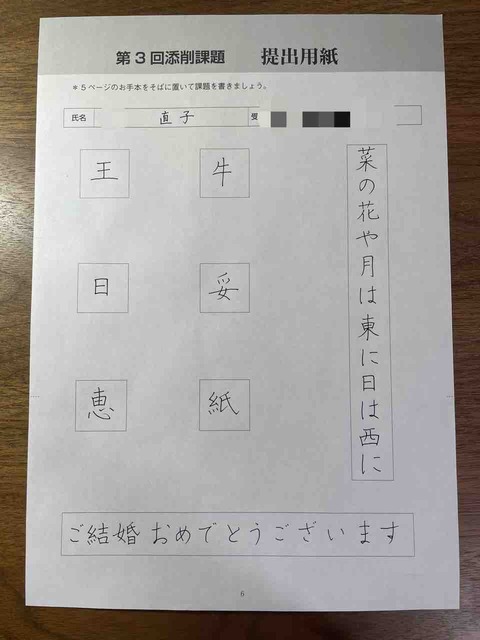 第3回添削課題 提出用紙
＊5ページのお手本をそばに置いて課題を書きましょう。
氏名 直子 受
王 牛
日 妥
恵 紙
菜の花や月は東に日は西に
ご結婚おめでとうございます
6